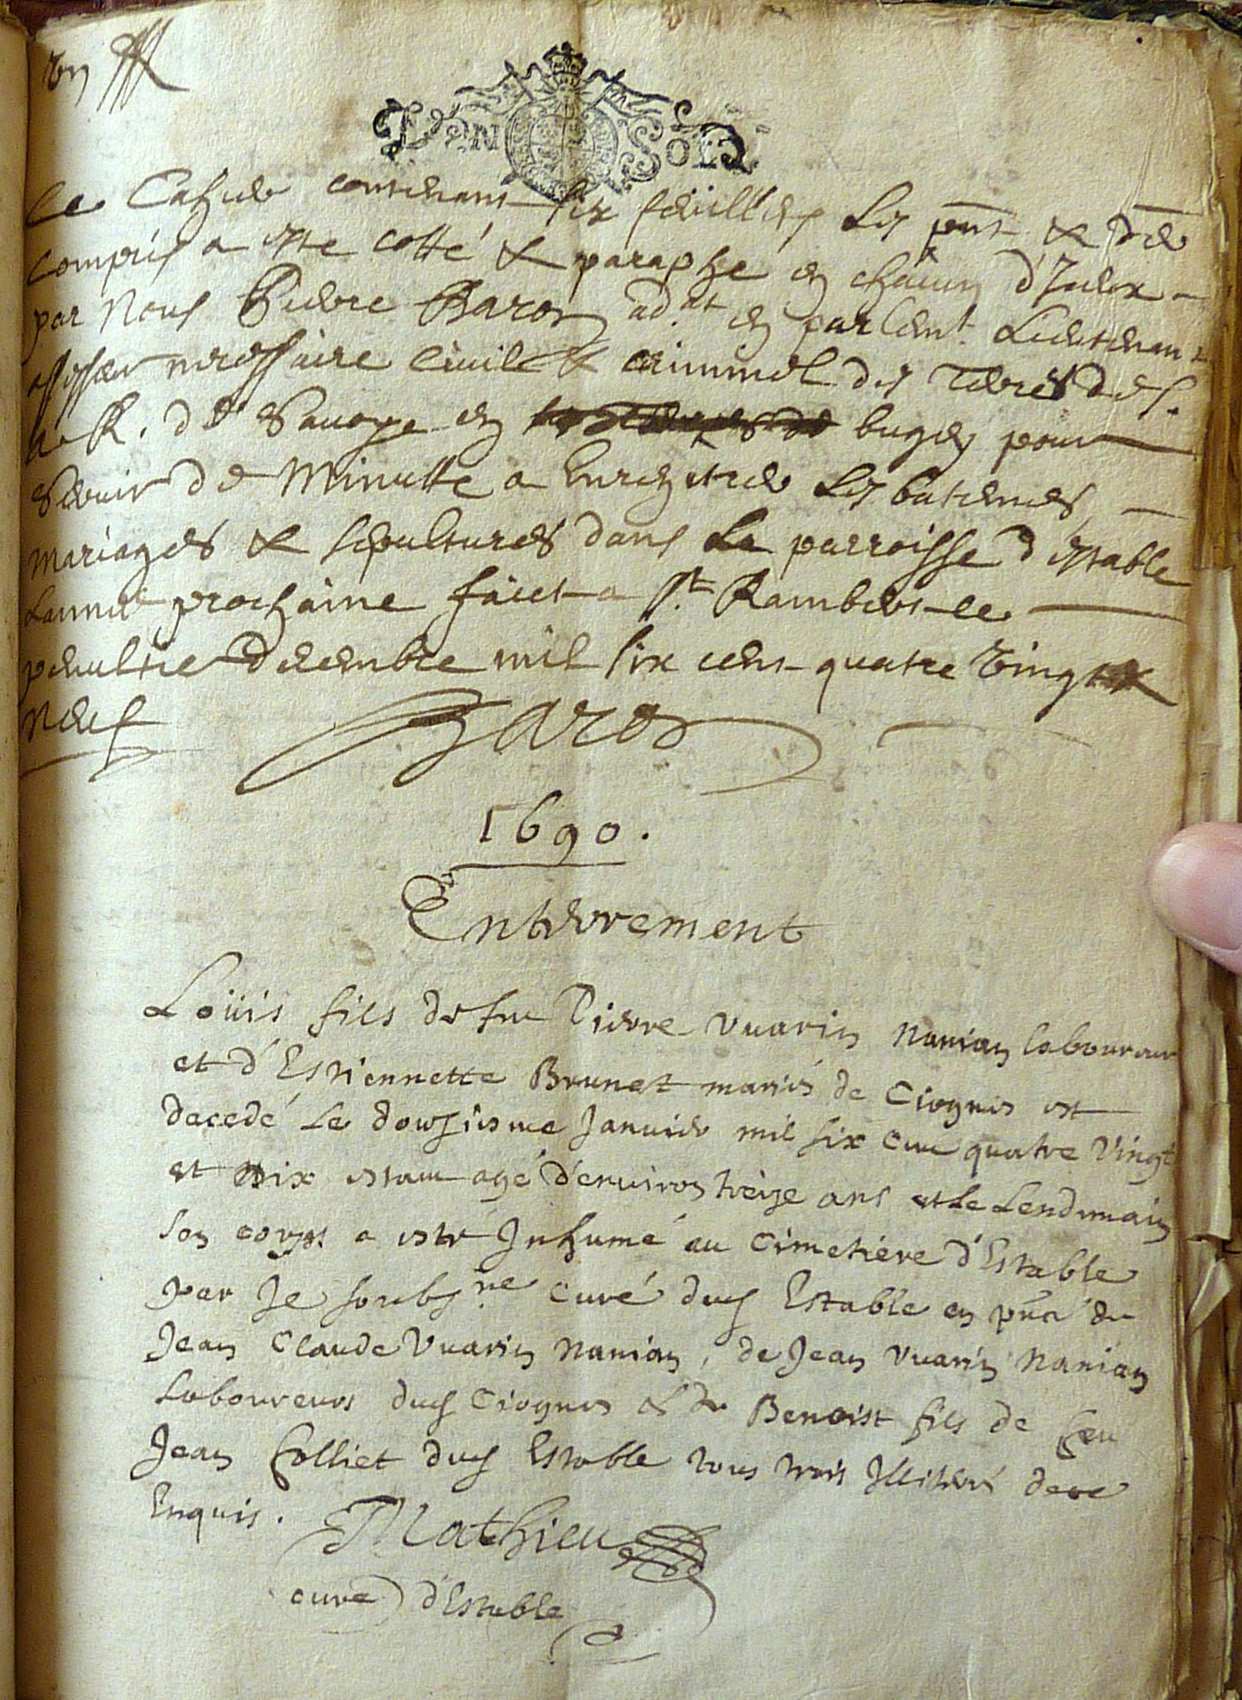 Un
Le Cahier contenant six feuilles les pnt & der
compris a este cotté & paraphe en chacun d'Iceux
par Nous Pierre Baron ad.at en parlent. Lieutenant
assesseur necessaire Civil & criminel des Terres de S.
A. R. de Savoye en bugey pour
servir de Minutte a Enregistrer les batemes
Mariages & sepultures dans La parroisse d'estable
Lannee prochaine faict a St. Rambert le
penultie decembre mil six cent quatre vingt
neuf
Baron
1690.
Enterrement
Loüis fils de feu Pierre Vuarin Nanian laboureur
et d'Estiennette Brunet mariés de Ciognis est
decedé Le dousiesme Janvier mil six cent quatre Vingt
et dix estant agé d'environ treize ans et le Lendemain
son corps a esté Inhumé au Cimetiere d'Estable
par Je soubsne curé dud Estable en pnce de
Jean Claude Vuarin Nanian, de Jean Vuarin Nanian
Laboureurs dud Ciognis & de Benoist fils de feu
Jean Colliet dud Estable tous trois Illiteré de ce
Enquis.
Mathieu
curé d'Estable